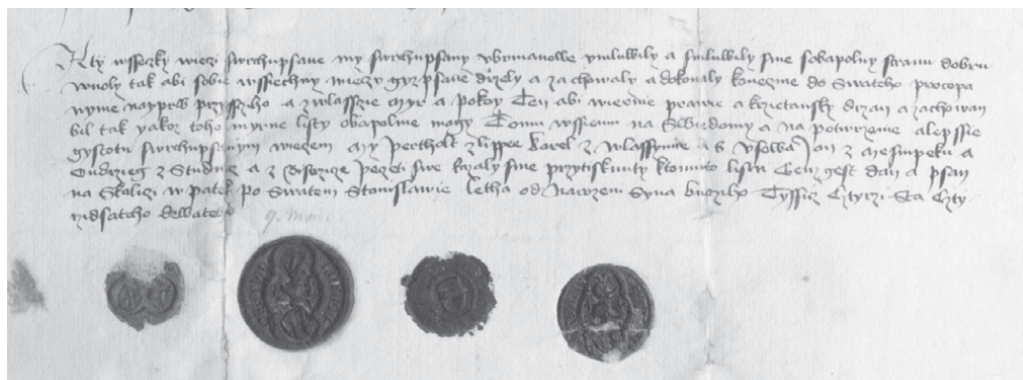 Kty wsseczky wieczi swrchupsane my swrchupsany vbrmanowe vmluwily a smluwily sme sobapolnu stranu dobru
wuoly tak abi sobie wssiechny wieczy gyz psane drzely a zachowaly a dokonaly koneczne do Swateho procopa
nyme nayprw przissziho a zwlasscze myr a pokoy Ten abi wiernie prawie a krzietansky drzan a zachowan
bil tak yakoz toho myrne listy obapolnie magy Tomu wssiemu na Swiedomy a na potwrzenie a lepssie
gystotu swrchupsanym wiecem My Perthold z lippee Karel z wlassymie a s Vsowa Jan z Mesimpeku a
Ondrzieg z Studnicz a z peczeti swe kazaly sme przytisknuty ktomuto listu Genz gest dan a psan
na Skalici w patek po Swatem Stanislawie letha od Narozeni Syna buozieho Tyssicz Cztyrzi Sta Czty
rzidsateho dewateho 9. Mai.